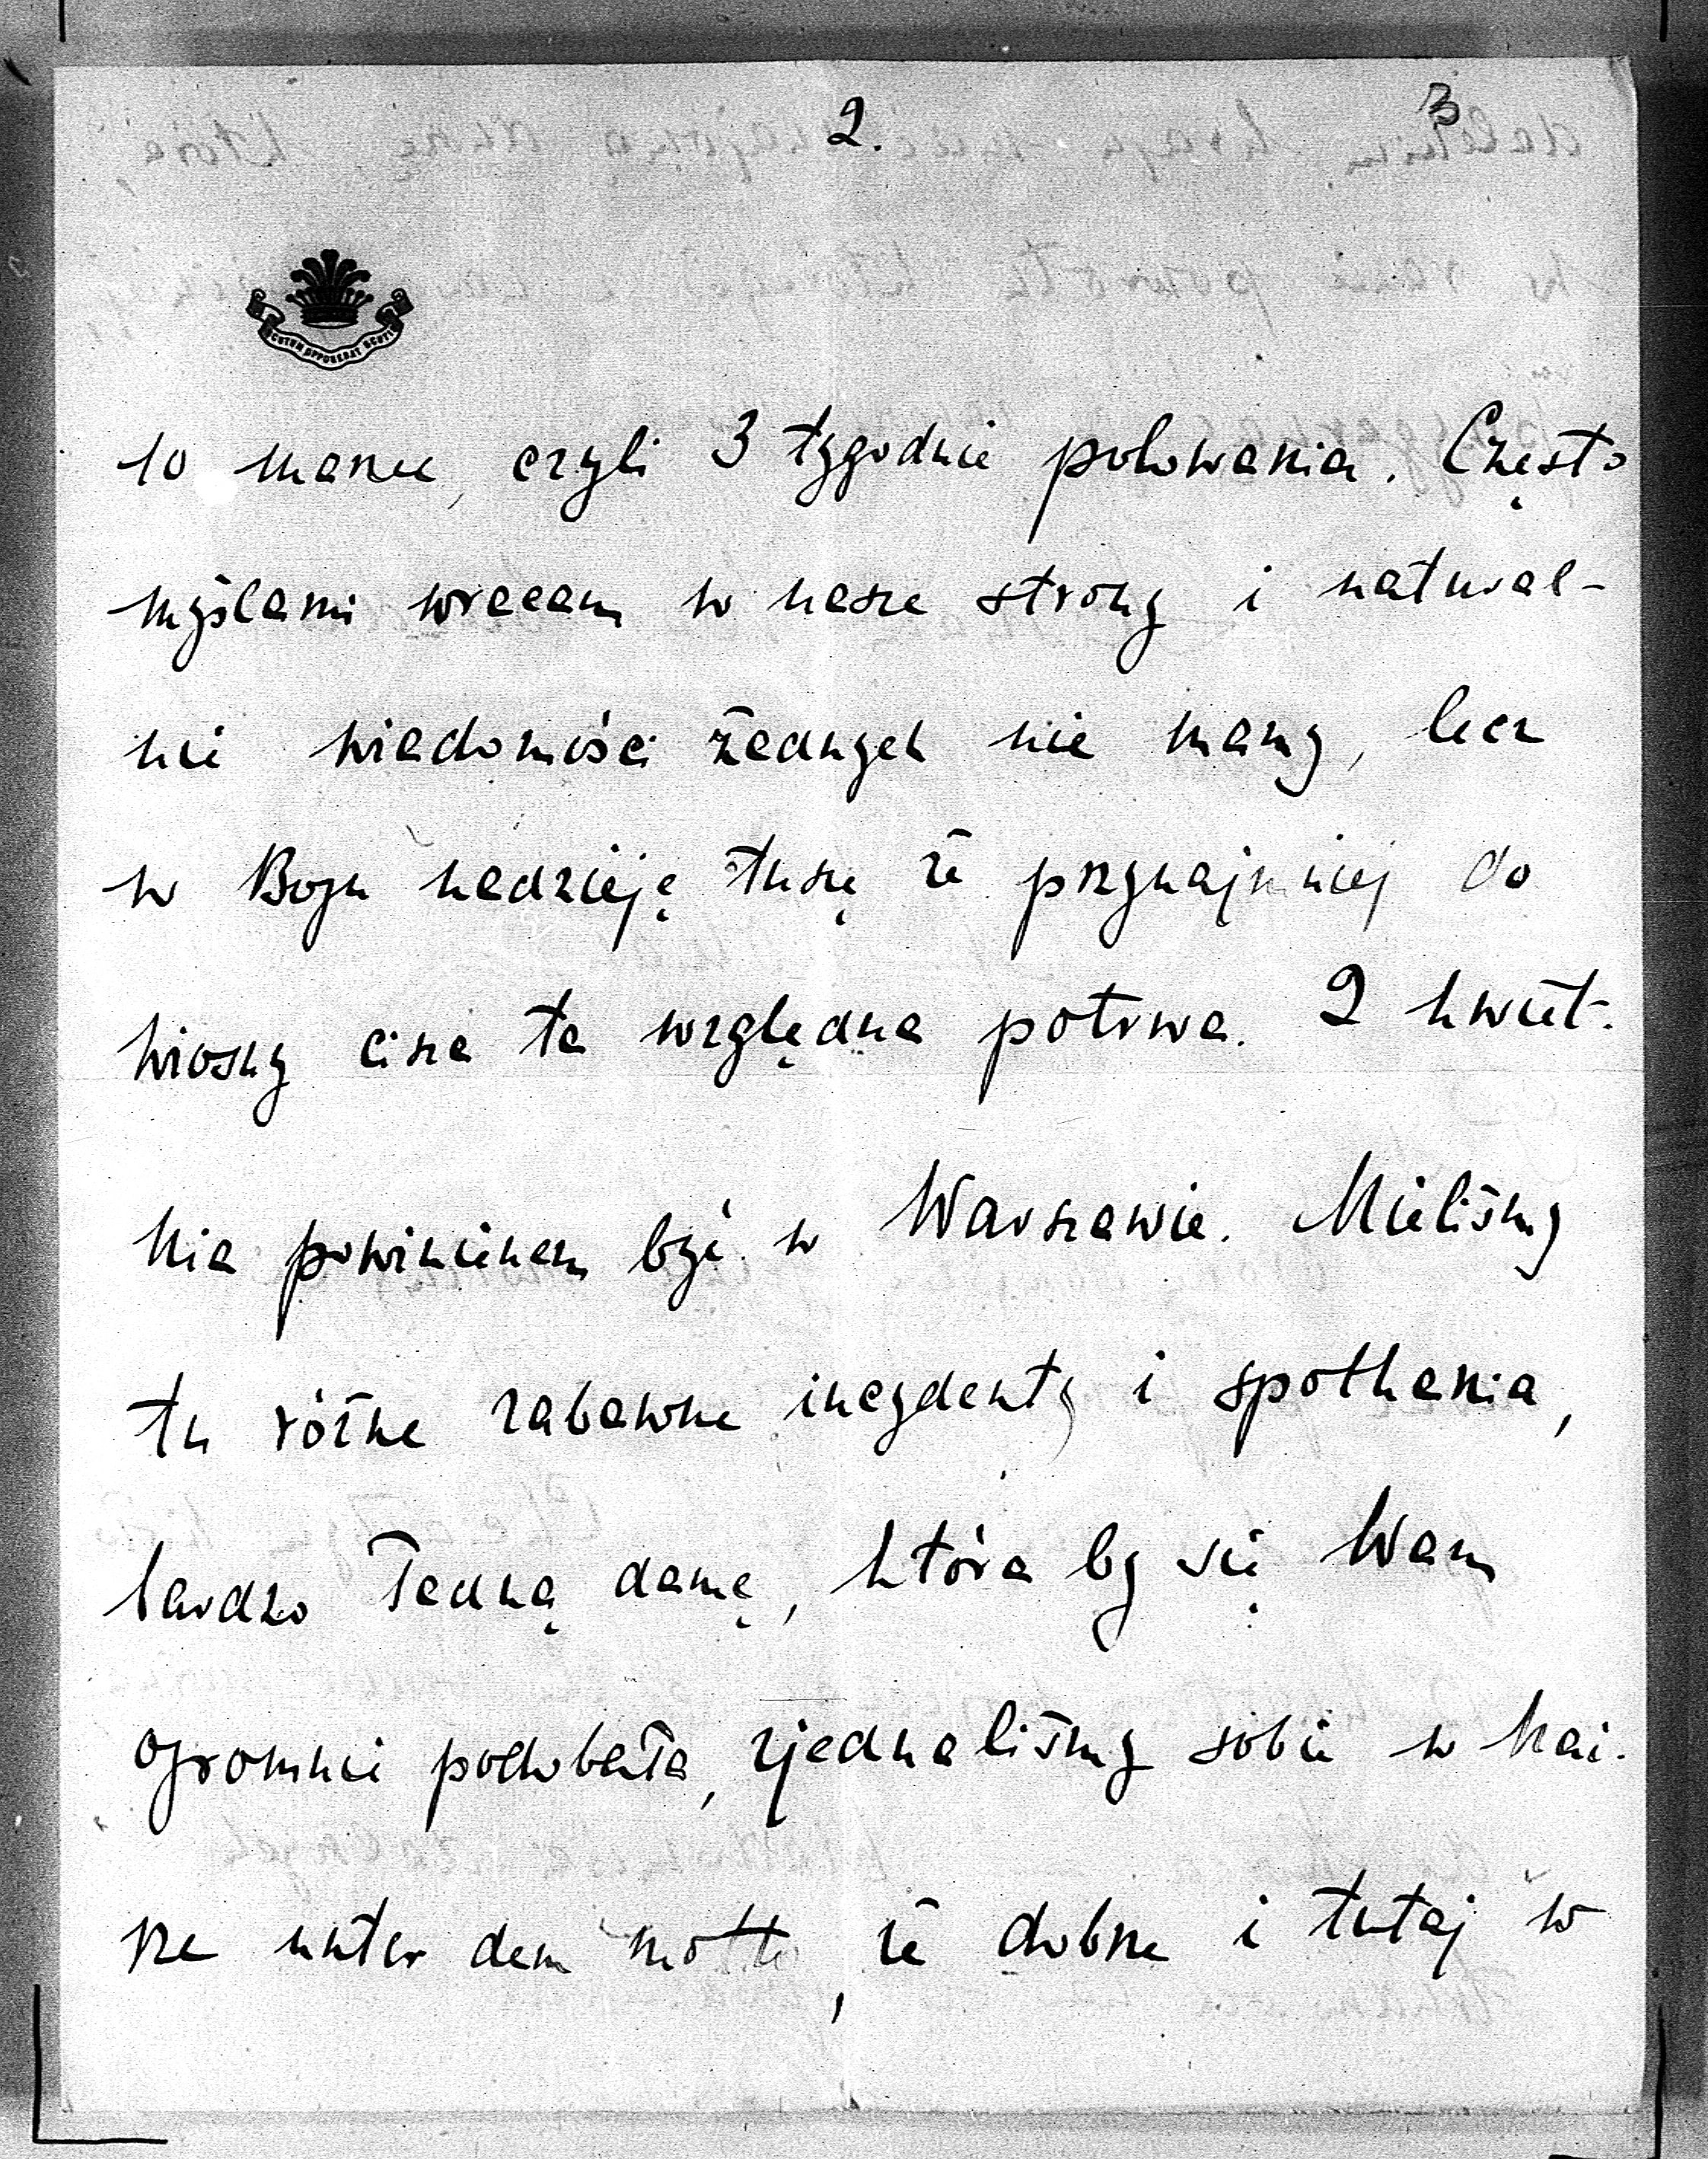 2.
3
SCUTUM OPPONEBAT SCUTIS
10 marca, czyli 3 tygodnie polowania. Często
myślami wracam w nasze strony i natural-
nie wiadomości żadnych nie mamy, lecz
w Bogu nadzieję tuszę że przynajmniej do
wiosny cisza ta względna potrwa. 2 kwiet-
nia powinienem być w Warszawie. Mieliśmy
tu różne zabawne incydenty i spotkania,
bardzo ładną damę, która by się Wam
ogromnie podobała, zjednaliśmy sobie w Kai-
rze unter dem motto, że dobrze i tutaj w